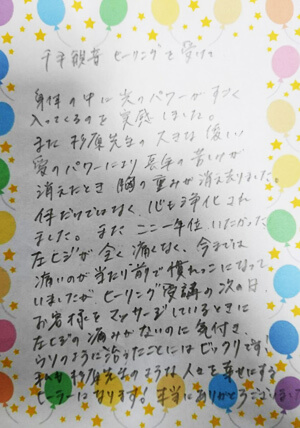 千手観音 ヒーリングを受けて
身体の中に光のパワーがすごく
入ってくるのを実感しました。
また 杉原先生の大きな優しい
愛のパワーにより 長年の苦しみが
消えたとき 胸の重みが消え去りました。
体だけではなく 心も浄化され
ました。また ここ一年位 いたかった
左ヒジが全く痛くなく、今までは
痛いのが当たり前で慣れっこになって
いましたが ヒーリング受講の次の日
お客様をマッサージしているときに
左ヒジの痛みがないのに気付き、
ウソのように治ったことにはビックリです!
私も杉原先生のような人々を幸せにする
ヒーラーになります。本当にありがとうございました